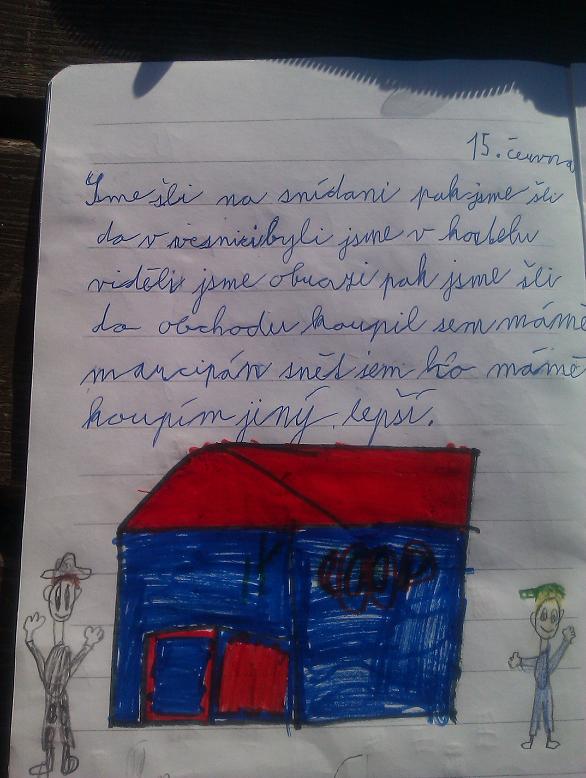 15. června
Jsme šli na snídani pak jsme šli
do v vesnici byli jsme v hostelu
viděli jsme obrazi pak jsme šli
do obchodu koupil sem mámě
marcipán snět sem ho mámě
koupím jiný lepší.
COOP